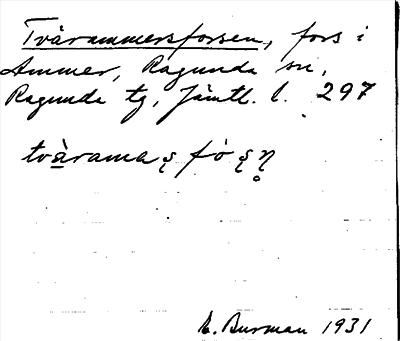 Tvärammersforsen, fors i
Ammer, Ragunda sn,
Ragunda tg, Jämtl. l. 297
tvàrama
E. Burman 1931